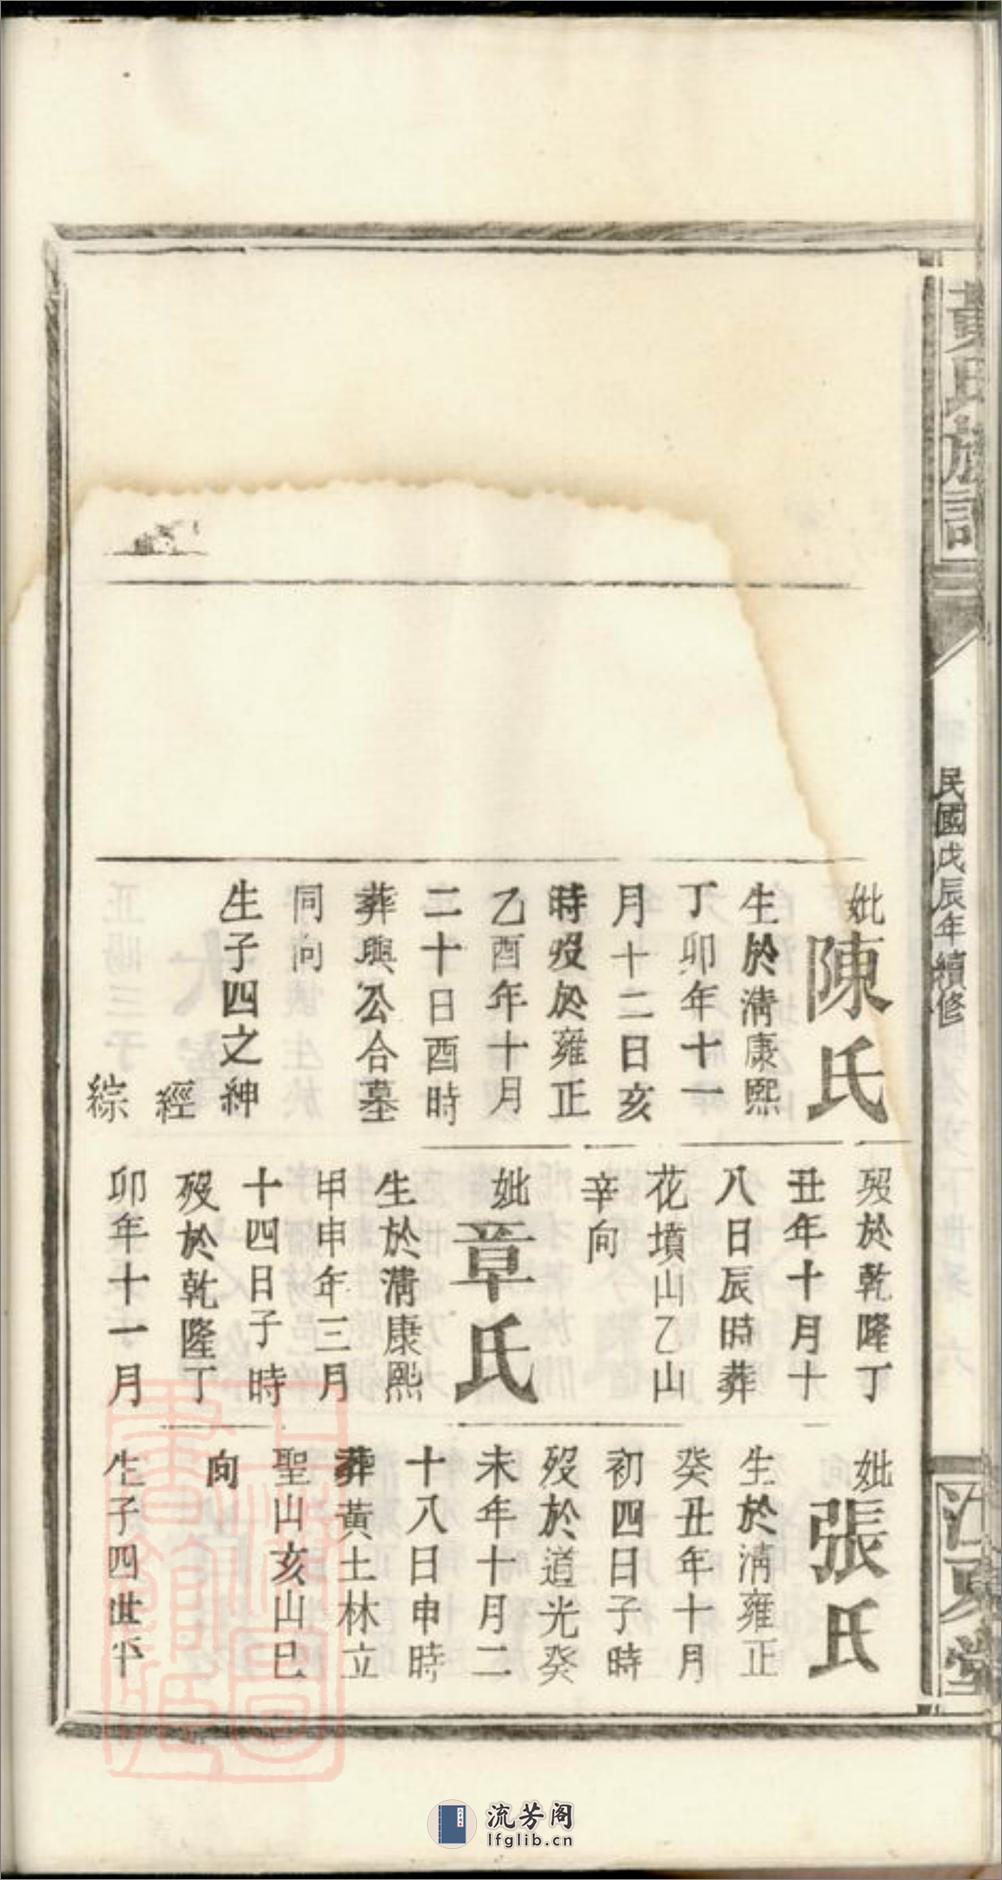 黃氏族譜
民國戊辰年續修
江夏堂
妣陳氏
生於清康熙
丁卯年十一
月十二日亥
時歿於雍正
乙酉年十月
二十日酉時
葬與公合墓
同向
生子四之紳
經
綜
歿於乾隆丁
丑年十月十
八日辰時葬
花墳山乙山
辛向
妣章氏
生於清康熙
甲申年三月
十四日子時
歿於乾隆丁
卯年十一月
妣張氏
生於清雍正
癸丑年十月
初四日子時
歿於道光癸
未年十月二
十八日申時
葬黃土林立
聖山亥山巳
向
生子四世平
流芳阁
lfglib.cn